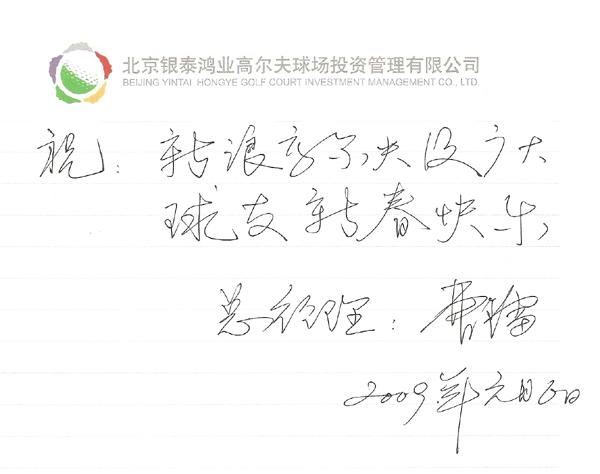 北京银泰鸿业高尔夫球场投资管理有限公司
BEIJING YINTAI HONGYE GOLF COURT INVESTMENT MANAGEMENT CO., LTD.
祝：新浪高尔夫及广大
球友新春快乐
总经理：
2009年元月6日